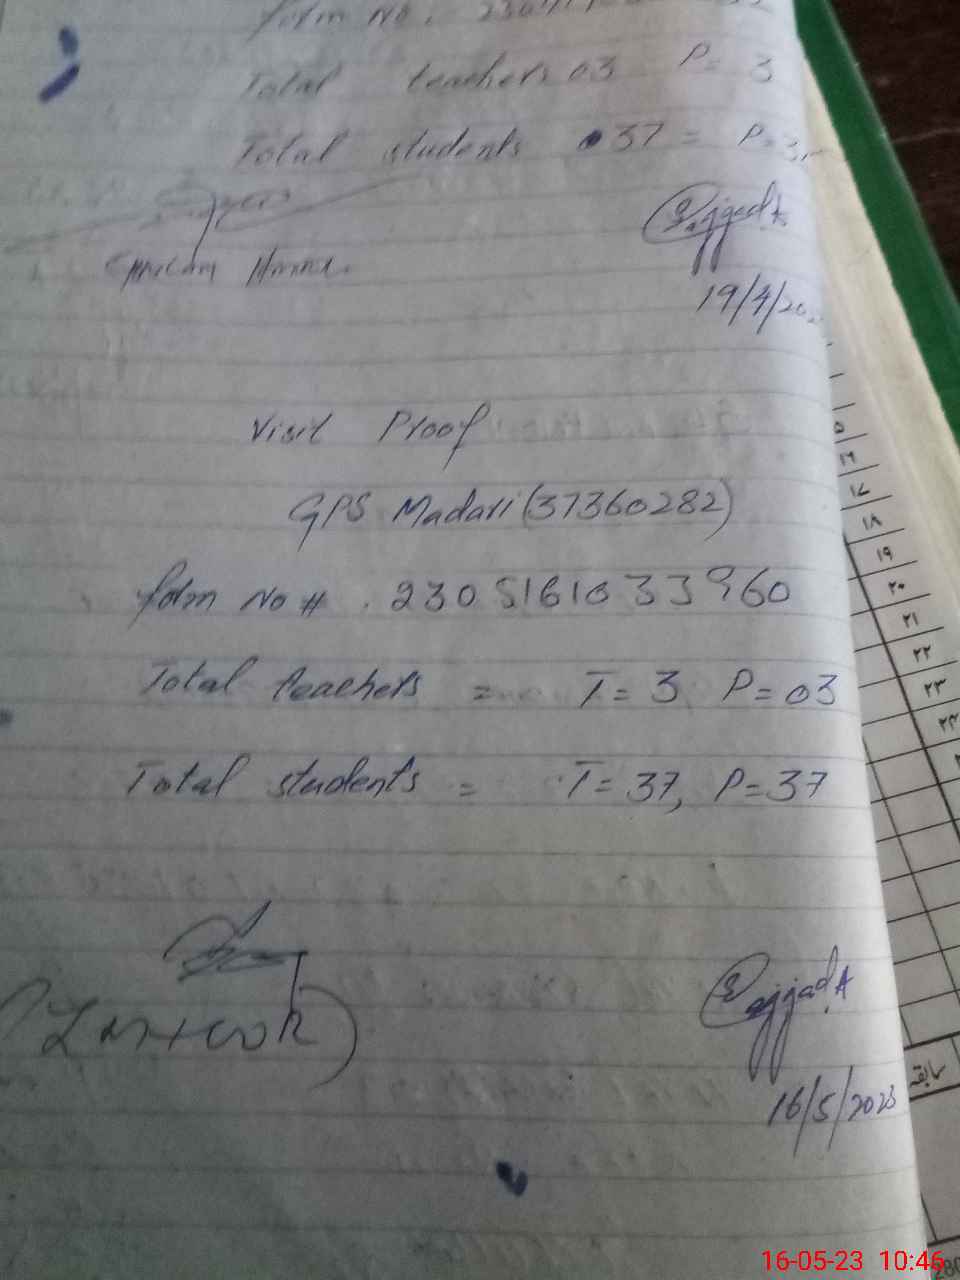 form No.
Total teachers 03 P= 3
Total students 37 = P=
Sajjad A
19/4/202
Visit Proof
GPS Madari (37360282)
form No # . 2305161033960
Total teachers = T= 3 P= 03
Total students = T= 37, P= 37
Sajjad A
16/5/2023
۱۸
۱۹
۲۰
۲۱
۲۲
۲۳
سابقہ
16-05-23 10:46